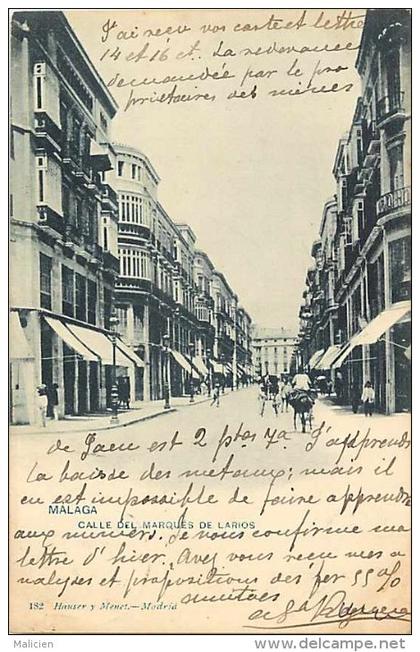 J'ai reçu vos carte et lettre
14 et 16 ct. La redevance
demandée par le pro
priétaires des mines
de Jaen est 2 ptas 7a. J'apprends
la baisse des metaux; mais il
en est impossible de faire apprendre
MÁLAGA
CALLE DEL MARQUÉS DE LARIOS
aux miniers. Je vous confirme ma
lettre d'hier. Avez vous reçu mes a
nalyses et propositions des per 55%
amitiés
182 Hauser y Menet.—Madrid
Malicien
http://www.delcampe.net